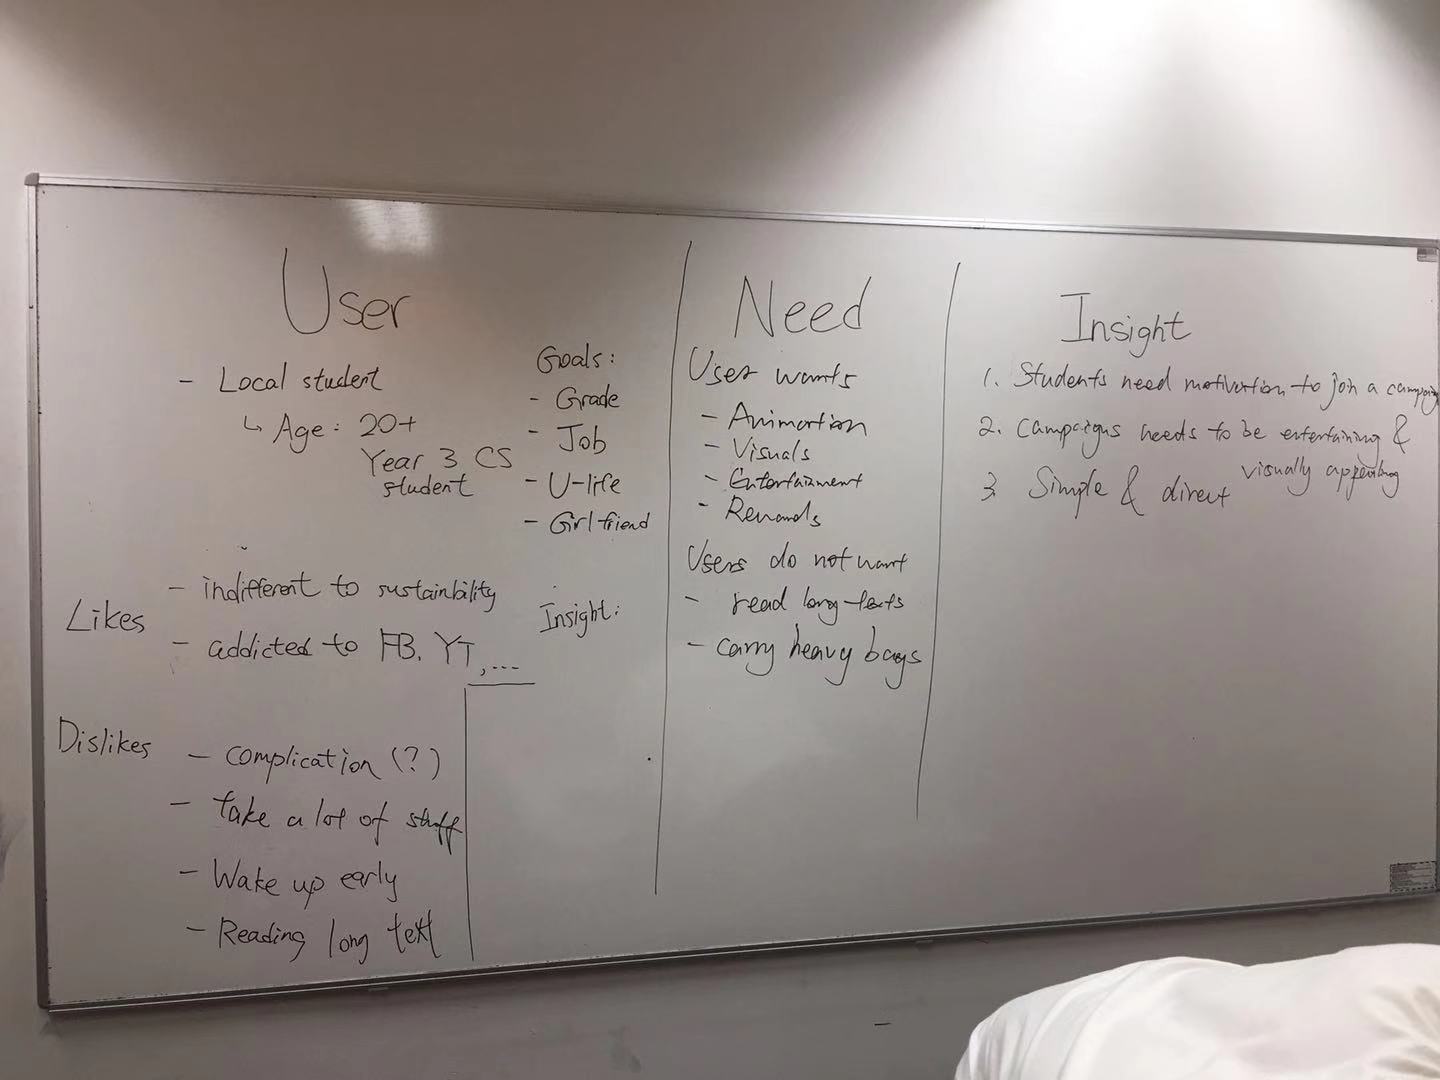 User
- Local student
↳ Age: 20+
Year 3 CS
student
Goals:
- Grade
- Job
- U-life
- Girlfriend
Likes
- indifferent to sustainbility
- addicted to FB, YT, ...
Insight:
Dislikes
- complication (?)
- take a lot of stuff
- Wake up early
- Reading long text
Need
User wants
- Animation
- Visuals
- Entertainment
- Rewards
Users do not want
- read long texts
- carry heavy bags
Insight
1. Students need motivation to join a campaign
2. Campaigns needs to be entertaining &
visually appealing
3. Simple & direct